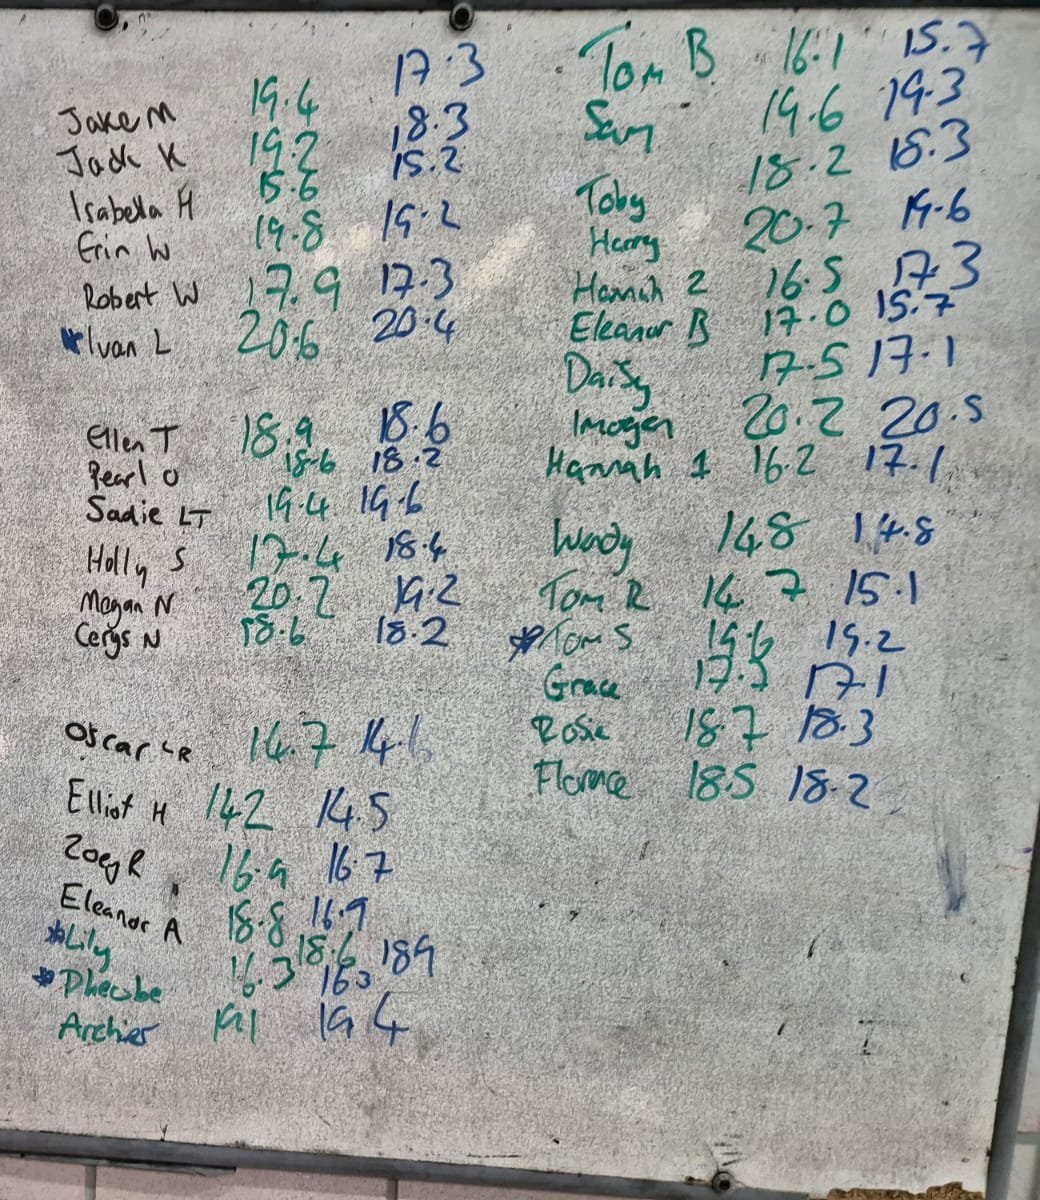 Jake M 19.4 17.3
Jack K 19.2 18.3
Isabella H 15.6 15.2
Erin W 19.8 19.2
Robert W 17.9 17.3
*Ivan L 20.6 20.4
Ellen T 18.9 18.6
Pearl O 18.6 18.2
Sadie LT 19.4 19.6
Holly S 17.4 18.4
Megan N 20.2 19.2
Cerys N 18.6 18.2
Oscar LR 14.7 14.6
Elliot H 142 14.5
Zoey R 16.9 16.7
Eleanor A 18.8 16.9
*Lily 18.6 189
*Pheobe 16.3 163
Archier 191 19 4
Tom B 16.1 15.7
Sam 19.6 19.3
Toby 18.2 18.3
Harry 20.7 19.6
Hannah 2 16.5 17.3
Eleanor B 17.0 15.7
Daisy 17.5 17.1
Imogen 20.2 20.5
Hannah 1 16.2 17.1
Wady 14.8 14.8
Tom R 14.7 15.1
*Tom S 15.6 15.2
Grace 17.3 17.1
Rosie 18.7 18.3
Florence 18.5 18.2